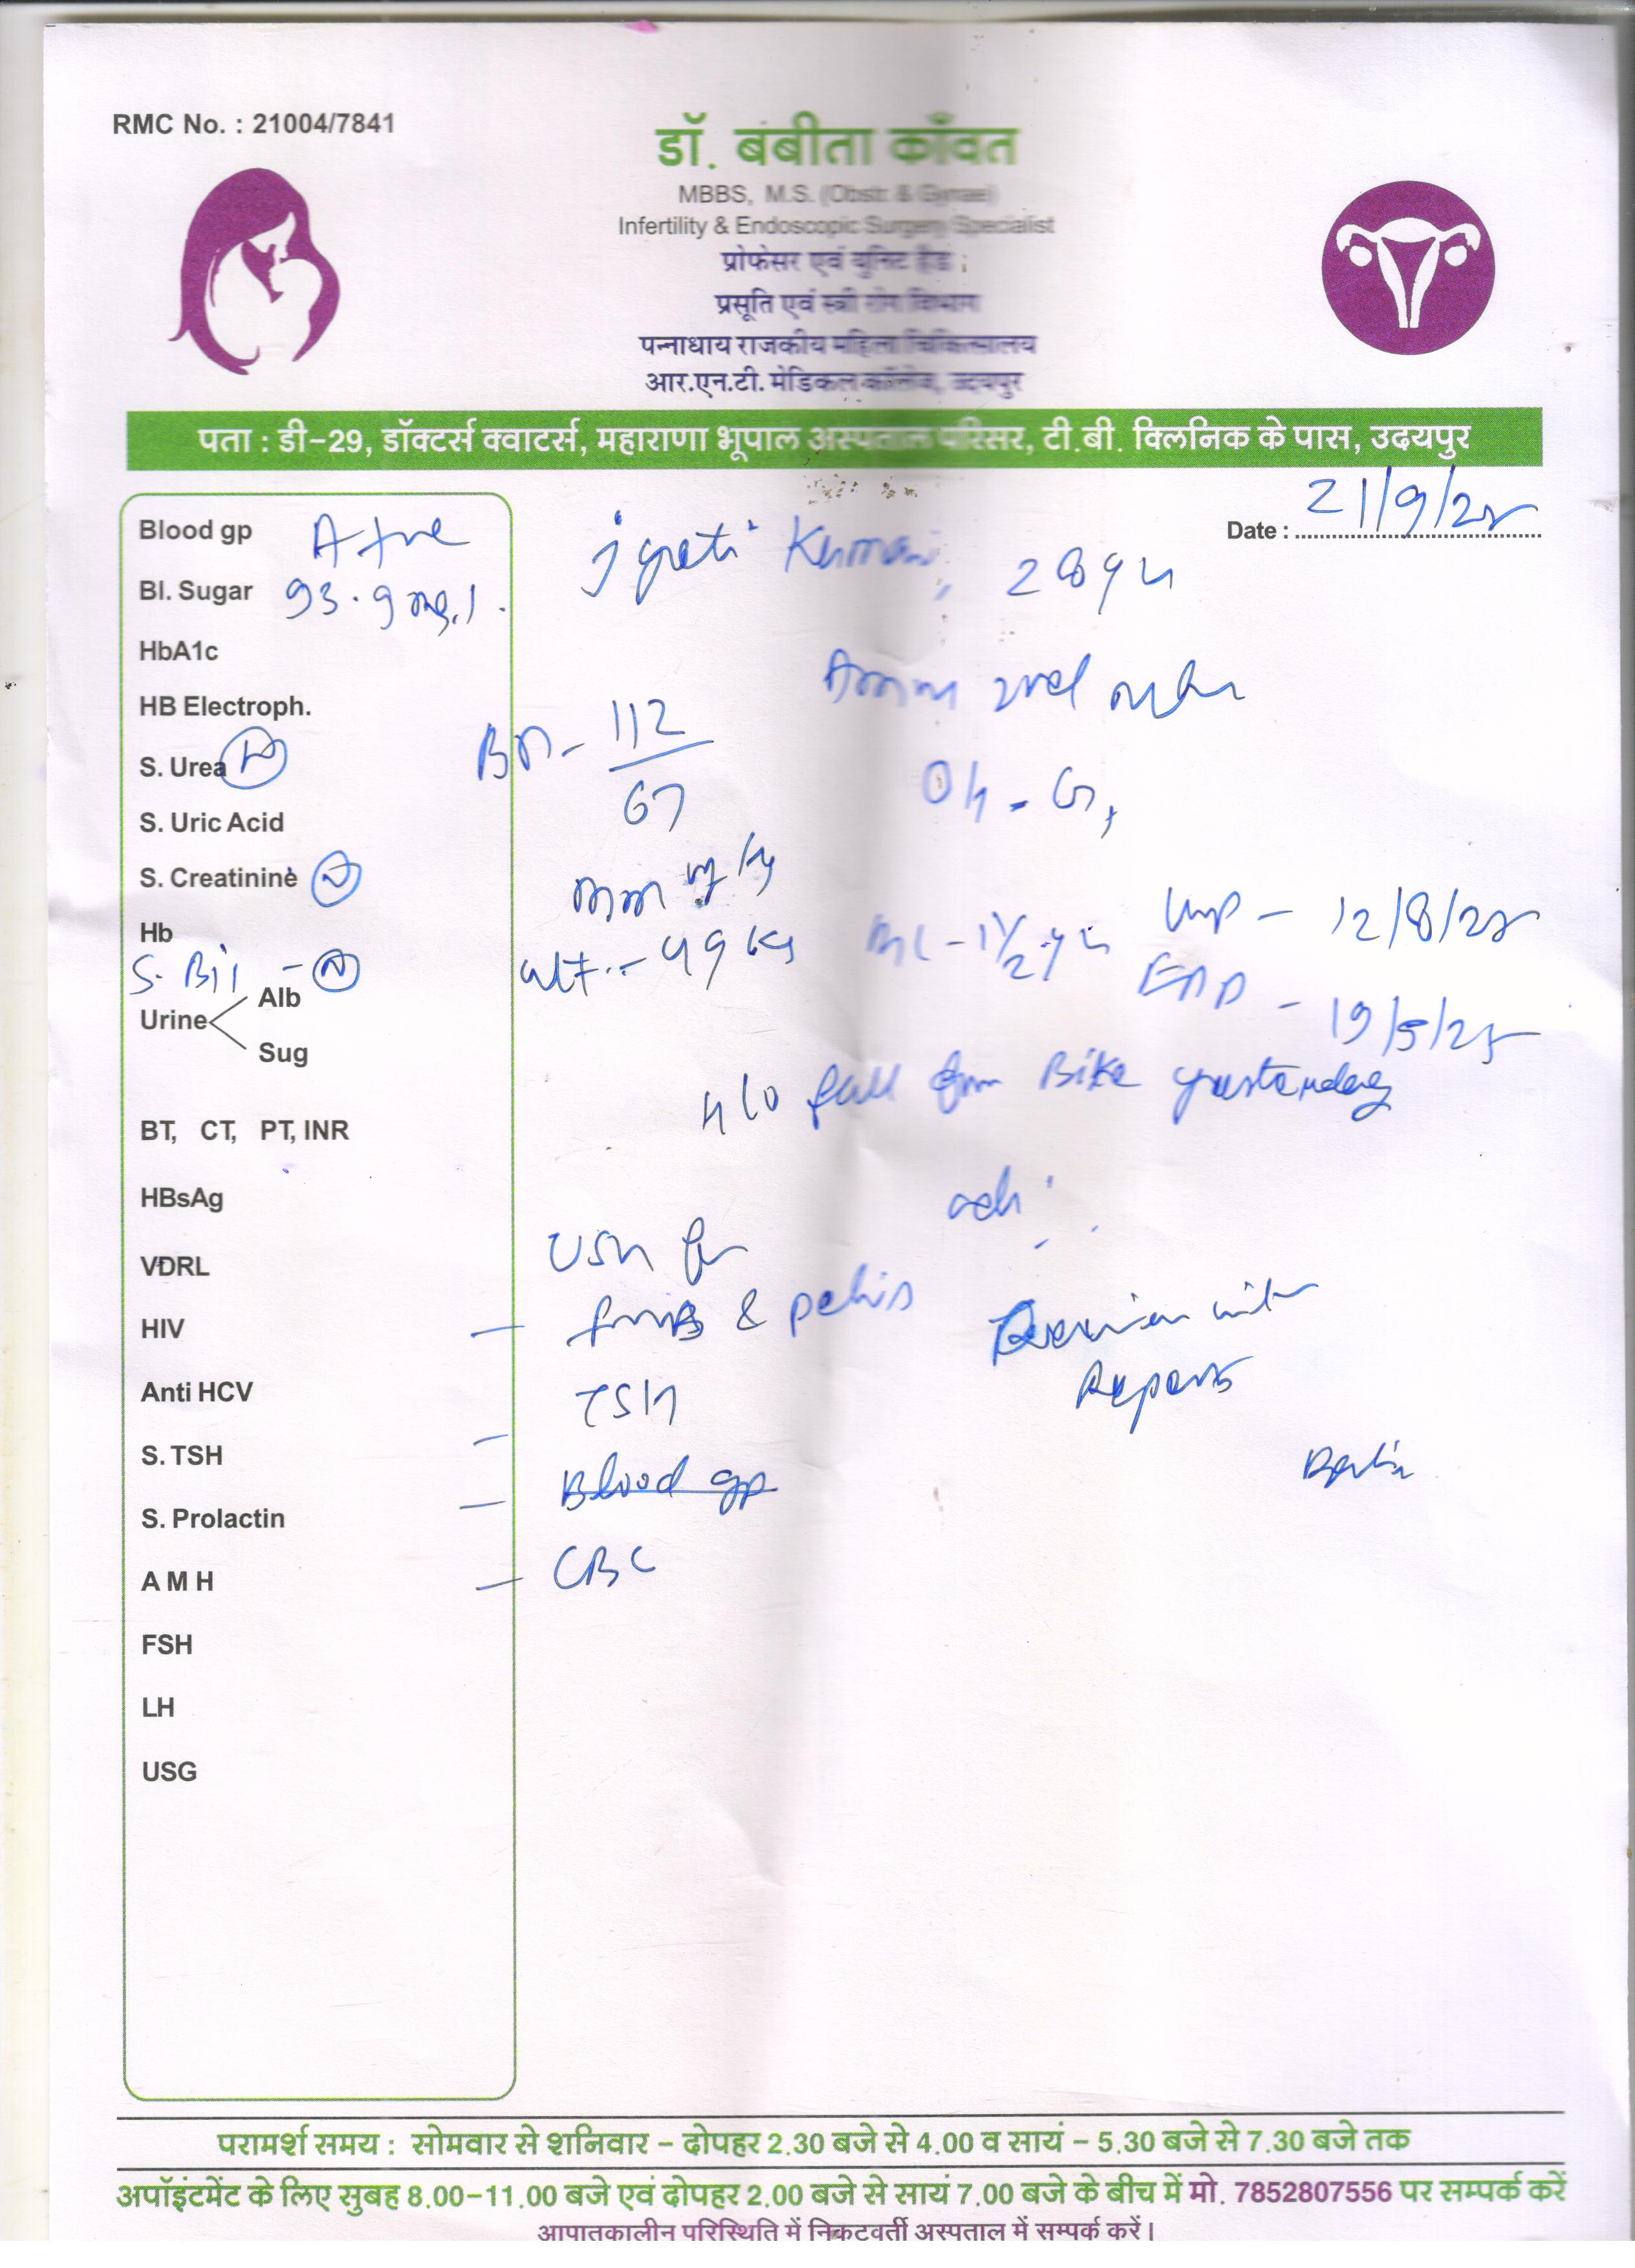 RMC No. : 21004/7841
डॉ. बबीता काँवत
MBBS, M.S. (Obstr. & Gynae)
Infertility & Endoscopic Surgery Specialist
प्रोफेसर एवं युनिट हैड :
प्रसूति एवं स्त्री रोग विभाग
पन्नाधाय राजकीय महिला चिकित्सालय
आर.एन.टी. मेडिकल कॉलेज, उदयपुर
पता : डी-29, डॉक्टर्स क्वाटर्स, महाराणा भूपाल अस्पताल परिसर, टी.बी. क्लिनिक के पास, उदयपुर
Date : 21/9/25
Blood gp A +ve
Jyoti Kumari, 28 yr
Bl. Sugar 93.9 mg.
HbA1c
HB Electroph.
S. Urea N
BP - 112/67
mm of Hg
O/H - G1
S. Uric Acid
S. Creatinine N
Hb
S. Bil - N
wt. - 49 Kg
ML - 1 1/2 yr
LMP - 12/8/25
EDD - 19/5/25
Urine Alb
Sug
H/O fall from Bike yesterday
BT, CT, PT, INR
HBsAg
adv
VDRL
USG for
HIV
- & pelvis
Review with
Reports
Anti HCV
TSH
S. TSH
- Blood gp
S. Prolactin
A M H
- CBC
FSH
LH
USG
परामर्श समय : सोमवार से शनिवार - दोपहर 2.30 बजे से 4.00 व सायं - 5.30 बजे से 7.30 बजे तक
अपॉइंटमेंट के लिए सुबह 8.00-11.00 बजे एवं दोपहर 2.00 बजे से सायं 7.00 बजे के बीच में मो. 7852807556 पर सम्पर्क करें
आपातकालीन परिस्थिति में निकटवर्ती अस्पताल में सम्पर्क करें।